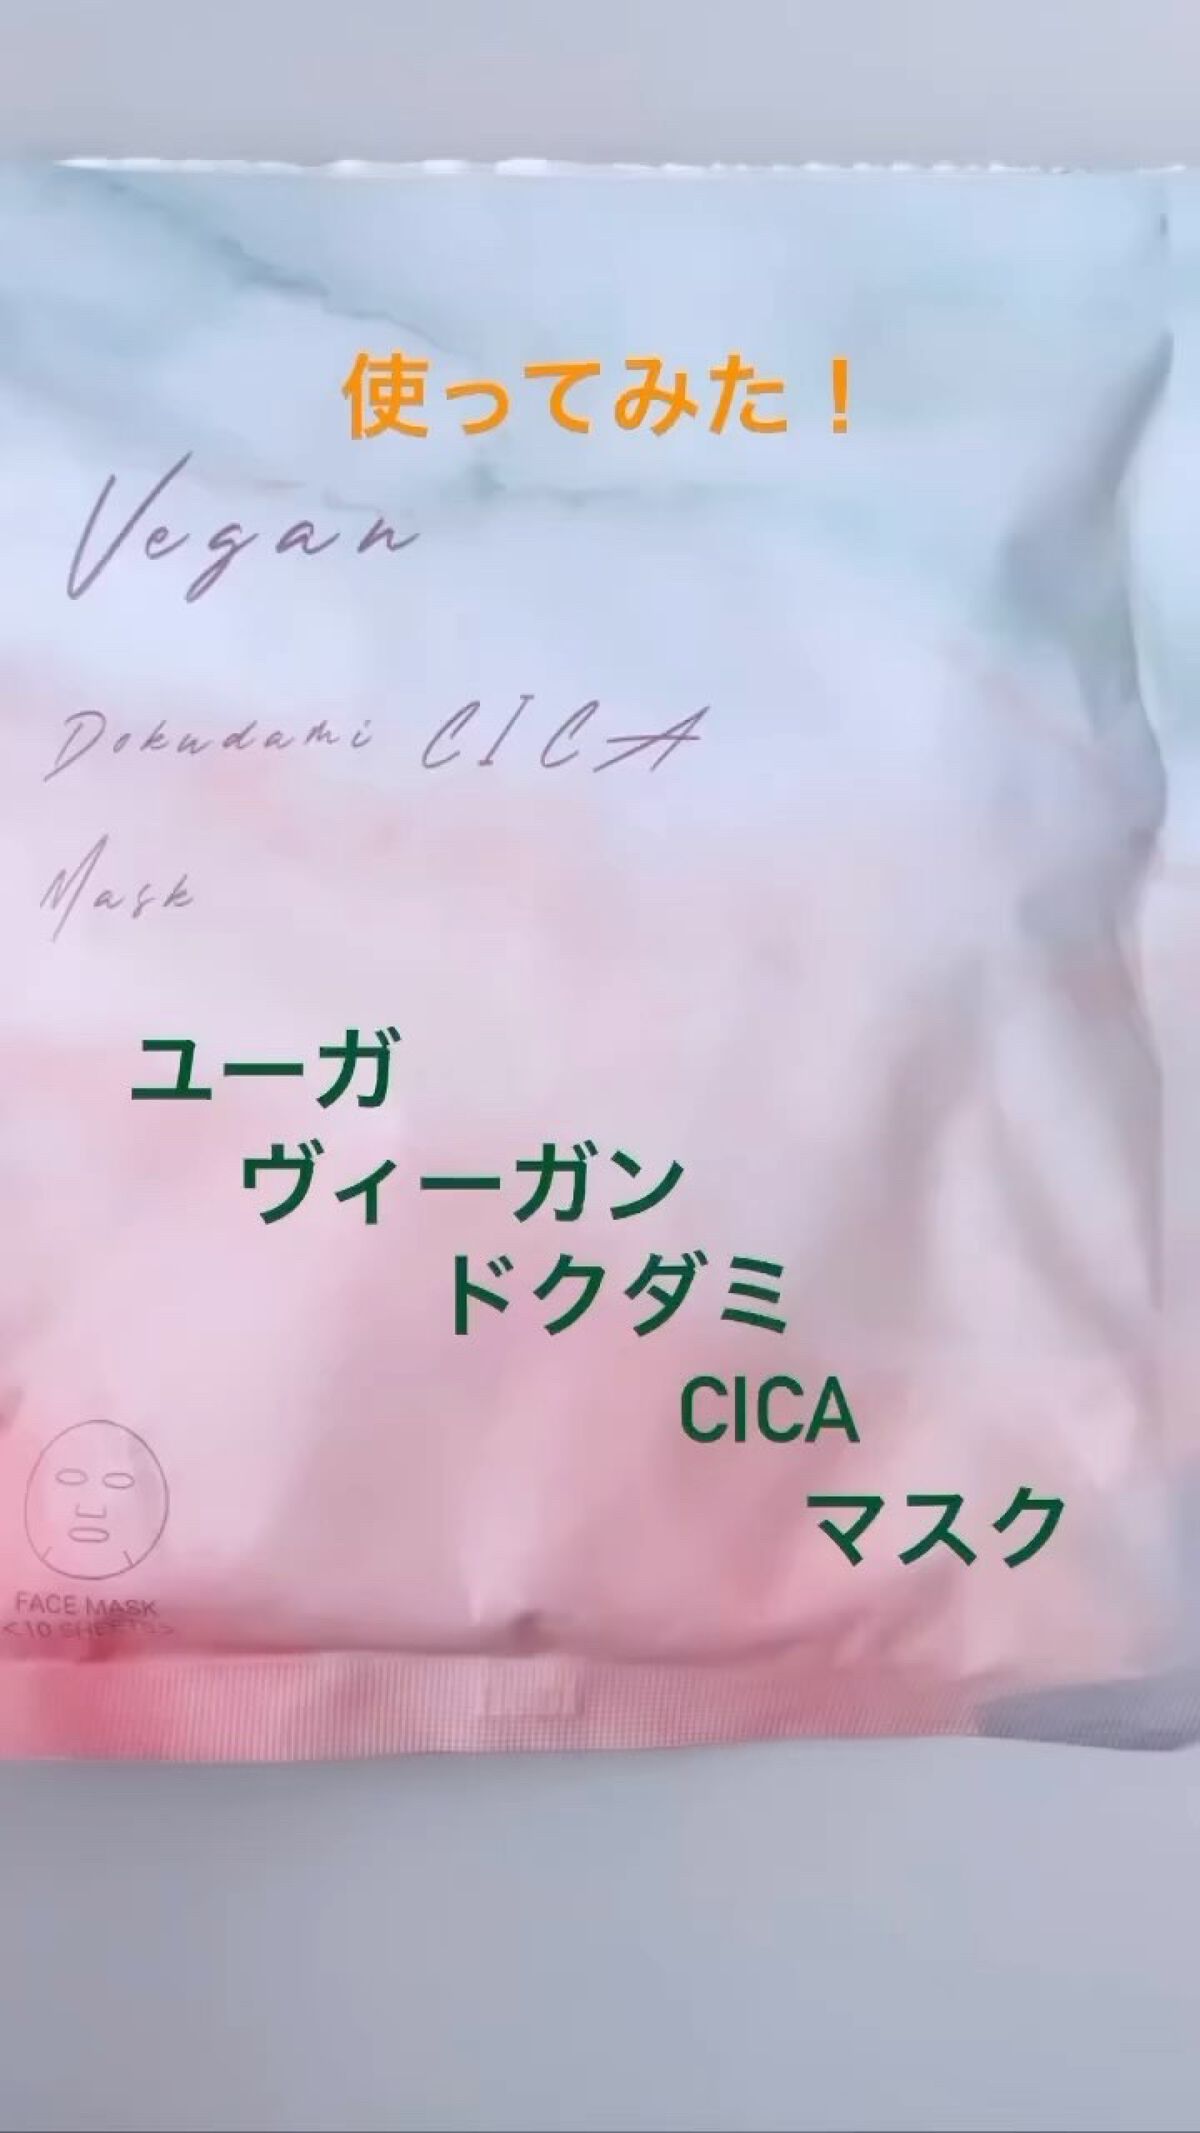 使ってみた！
Vegan
Dokudami CICA
Mask
ユーガ
ヴィーガン
ドクダミ
CICA
マスク
FACE MASK
<10 SHEETS>